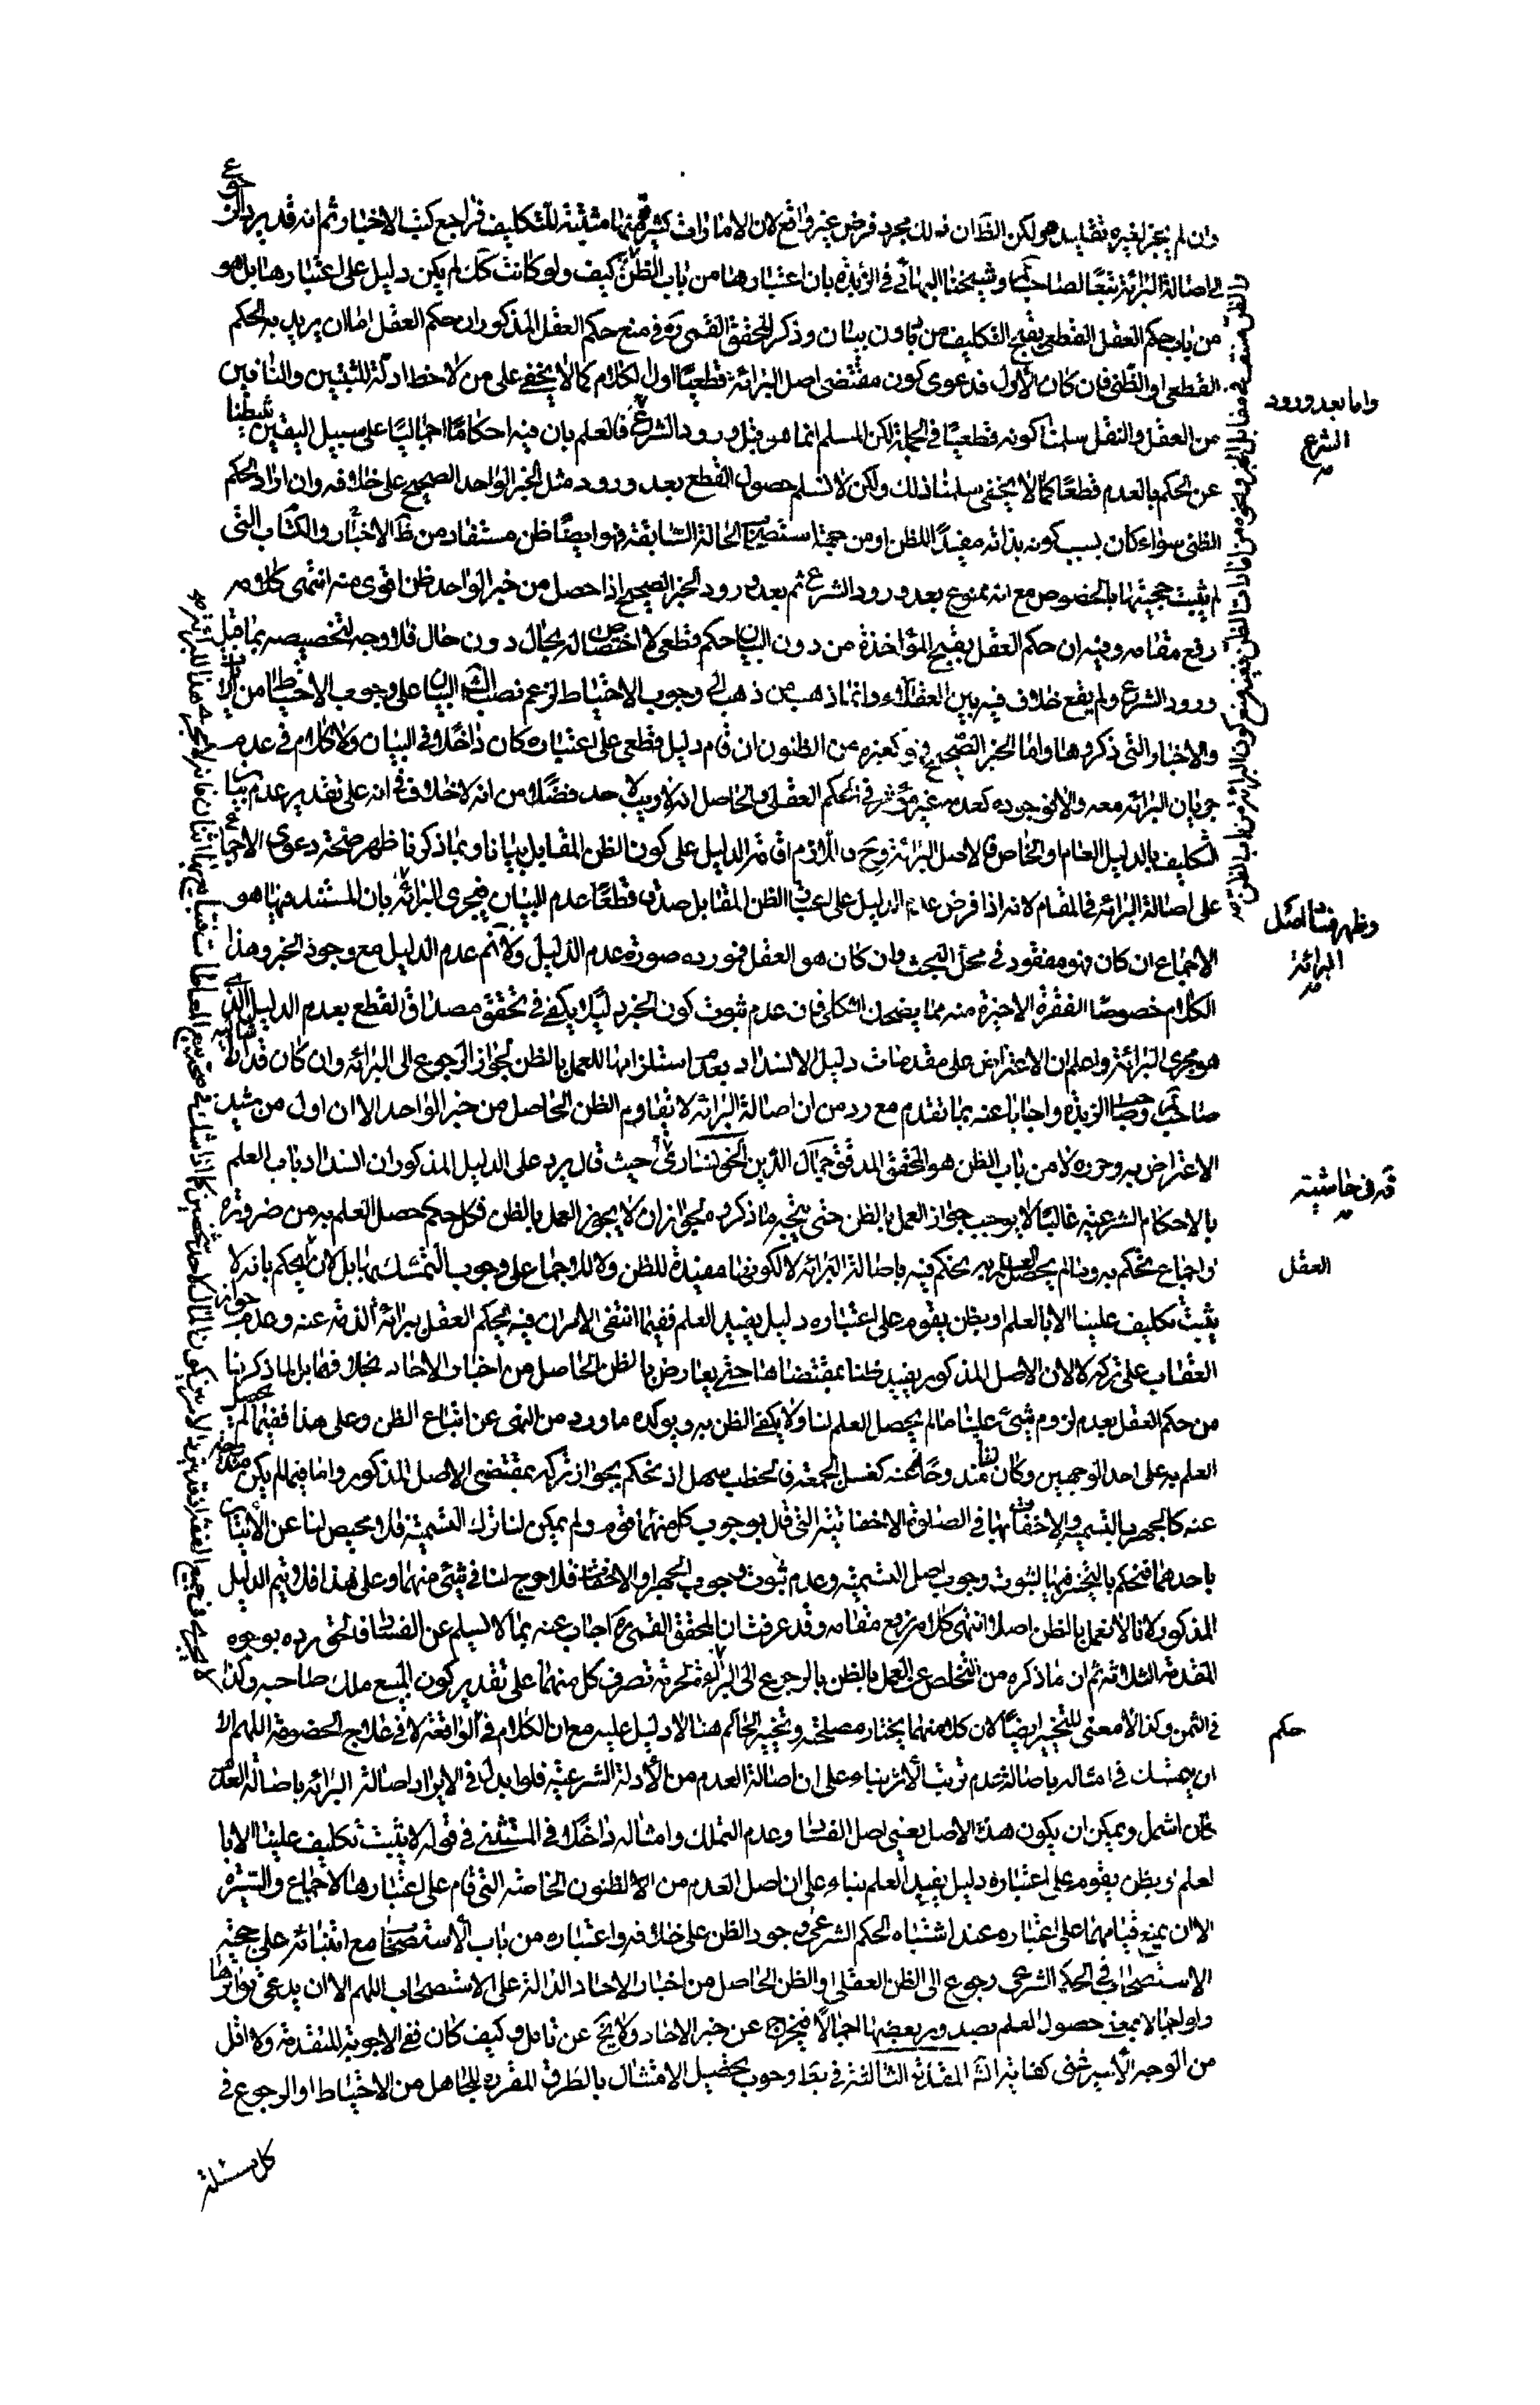 وان لم يجز لغيره تقليده هو لكن الظ ان ذلك مجرد فرض غير واقع لان الامارات كثيرة منها مثبتة للتكليف فراجع كتب الاخبار ثم انه قد يرد الرجوع
الى اصالة البرائة تبعا لصاحب لم وشيخنا البهائي في الزبدة بان اعتبارها من باب الظن كيف ولو كانت كك لم يكن دليل على اعتبارها بل هو
من باب حكم العقل القطعي بقبح التكليف من دون بيان وذكر المحقق القمي ره في منع حكم العقل المذكور ان حكم العقل اما ان يريد به الحكم
القطعي او الظني فان كان الاول فدعوى كون مقتضى اصل البرائة قطعيا اول الكلام كما لا يخفى على من لاحظ ادلة المثبتين والنافين
من العقل والنقل سلمنا كونه قطعيا في الجملة لكن المسلم انما هو قبل ورود الشرع فالعلم بان فيه احكاما اجمالية على سبيل اليقين يثبطنا
عن الحكم بالعدم قطعا كما لا يخفى سلمنا ذلك ولكن لا نسلم حصول القطع بعد ورود مثل الخبر الواحد الصحيح على خلافه وان اراد الحكم
الظني سواء كان بسبب كونه بذاته مفيدا للظن او من جهة استصحاب الحالة السابقة فهو ايضا ظن مستفاد من ظ الاخبار والكتاب التي
لم يثبت حجيتها بالخصوص مع انه ممنوع بعد ورود الشرع ثم بعد ورود الخبر الصحيح اذا حصل من خبر الواحد ظن اقوى منه انتهى كلامه
رفع مقامه وفيه ان حكم العقل بقبح المؤاخذة من دون البيان حكم قطعي لا اختصاص له بحال دون حال فلا وجه لتخصيصه بما قبل
ورود الشرع ولم يقع خلاف فيه بين العقلاء وانما ذهب من ذهب الى وجوب الاحتياط لزعم نصب الش البيان على وجوب الاحتياط من الايات
والاخبار التي ذكروها واما الخبر الصحيح فهو كغيره من الظنون ان قام دليل قطعي على اعتباره كان داخلا في البيان ولا كلام في عدم
جريان البرائة معه والا فوجوده كعدمه غير مؤثر في الحكم العقلي والحاصل انه لا ريب لاحد فضلا من انه لا خلاف في انه على تقدير عدم بيان
التكليف بالدليل العام او الخاص فالاصل البرائة وح فاللازم اقامة الدليل على كون الظن المقابل بيانا وبما ذكرنا ظهر صحة دعوى الاجماع
على اصالة البرائة في المقام لانه اذا فرض عدم الدليل على اعتبار الظن المقابل صدق قطعا عدم البيان فيجرى البرائة بان المستند فيها هو
الاجماع ان كان فهو مفقود في محل البحث وان كان هو العقل فمورده صورة عدم الدليل ولا نم عدم الدليل مع وجود الخبر وهذا
الكلام خصوصا الفقرة الاخيرة منه مما يضحك الثكلى فان عدم ثبوت كون الخبر دليلا يكفى في تحقق مصداق القطع بعدم الدليل الذي
هو مجرى البرائة واعلم ان الاعتراض على مقدمات دليل الانسداد بعدم استلزامها للعمل بالظن لجواز الرجوع الى البرائة وان كان قد اشار اليه
صاحب لم وصاحب الزبدة واجابا عنه بما تقدم مع رده من ان اصالة البرائة لا تقاوم الظن الحاصل من خبر الواحد الا ان اول من شيد
الاعتراض به وحرره لا من باب الظن هو المحقق المدقق جمال الدين الخونساري حيث قال يرد على الدليل المذكور ان انسداد باب العلم
بالاحكام الشرعية غالبا لا يوجب جواز العمل بالظن حتى يتجه ما ذكروه لجواز ان لا يجوز العمل بالظن فكل حكم حصل العلم به من ضرورة
او اجماع نحكم به وما لم يحصل العلم به نحكم فيه باصالة البرائة لا لكونها مفيدة للظن ولا للاجماع على وجوب التمسك بها بل لان يحكم بانه لا
يثبت تكليف علينا الا بالعلم او بظن يقوم على اعتباره دليل يفيد العلم ففيما انتفى الامران فيه يحكم العقل ببرائة الذمة عنه وعدم جواز
العقاب على تركه لا لان الاصل المذكور يفيد ظنا بمقتضاها حتى يعارض بالظن الحاصل من اخبار الاحاد بخلافها بل لما ذكرنا
من حكم العقل بعدم لزوم شيء علينا ما لم يحصل العلم لنا ولا يكفى الظن به ويؤكده ما ورد من النهى عن اتباع الظن وعلى هذا ففيما لم يحصل
العلم به على احد الوجهين وكان لنا مندوحة عنه كغسل الجمعة فالخطب سهل اذ نحكم بجواز تركه بمقتضى الاصل المذكور واما فيما لم يكن مندوحة
عنه كالجهر بالتسمية والاخفات بها في الصلوة الاخفاتية التي قال بوجوب كل منهما قوم ولم يمكن لنا ترك التسمية فلا محيص لنا عن الاتيان
باحدهما فنحكم بالتخيير فيها لثبوت وجوب اصل التسمية وعدم ثبوت وجوب الجهر او الاخفات فلا حرج لنا في شيء منهما وعلى هذا فلا يتم الدليل
المذكور لانا لا نعمل بالظن اصلا انتهى كلامه رفع مقامه وقد عرفت ان المحقق القمي ره اجاب عنه بما لا يسلم عن الفساد فالحق رده بوجوه
المقدمة الثلثة ثم ان ما ذكره من التخلص عن العمل بالظن بالرجوع الى البرائة لحرمة تصرف كل منهما على تقدير كون المبيع ملك صاحبه وكذا
في الثمن وكذا لا معنى للتخيير ايضا لان كلا منهما يختار مصلحته وتخيير الحاكم هنا لا دليل عليه مع ان الكلام في الواقعة لا في علاج الخصومة اللهم الا
ان يتمسك في امثاله باصالة عدم ترتب الاثر بناء على ان اصالة العدم من الادلة الشرعية فلو ابدل في الايراد اصالة البرائة باصالة العدم
كان اشمل ويمكن ان يكون هذا الاصل يعني اصل الفساد وعدم التملك وامثاله داخلا في المستثنى في قوله لا يثبت تكليف علينا الا با
لعلم او بظن يقوم على اعتباره دليل يفيد العلم بناء على ان اصل العدم من الظنون الخاصة التي قام على اعتبارها الاجماع والسيرة
الا ان يمنع قيامهما على اعتباره عند اشتباه الحكم الشرعي وجود الظن على خلافه واعتباره من باب الاستصحاب مع ابتنائه على حجية
الاستصحاب في الحكم الشرعي رجوع الى الظن العقلي او الظن الحاصل من اخبار الاحاد الدالة على الاستصحاب اللهم الا ان يدعى تواترها
ولو اجمالا بمعنى حصول العلم بصدور بعضها اجمالا فيخرج عن خبر الاحاد ولا يخ عن تامل وكيف كان ففي الاجوبة المتقدمة ولا اقل
من الوجه الاخير غنى وكفاية انش المقدمة الثالثة في بط وجوب تحصيل الامتثال بالطرق المقررة للجاهل من الاحتياط او الرجوع في
كل مسئلة
واما بعد ورود
الشرع
وظهر فساد اصل
البرائة
قه في حاشيته
العقل
حكم